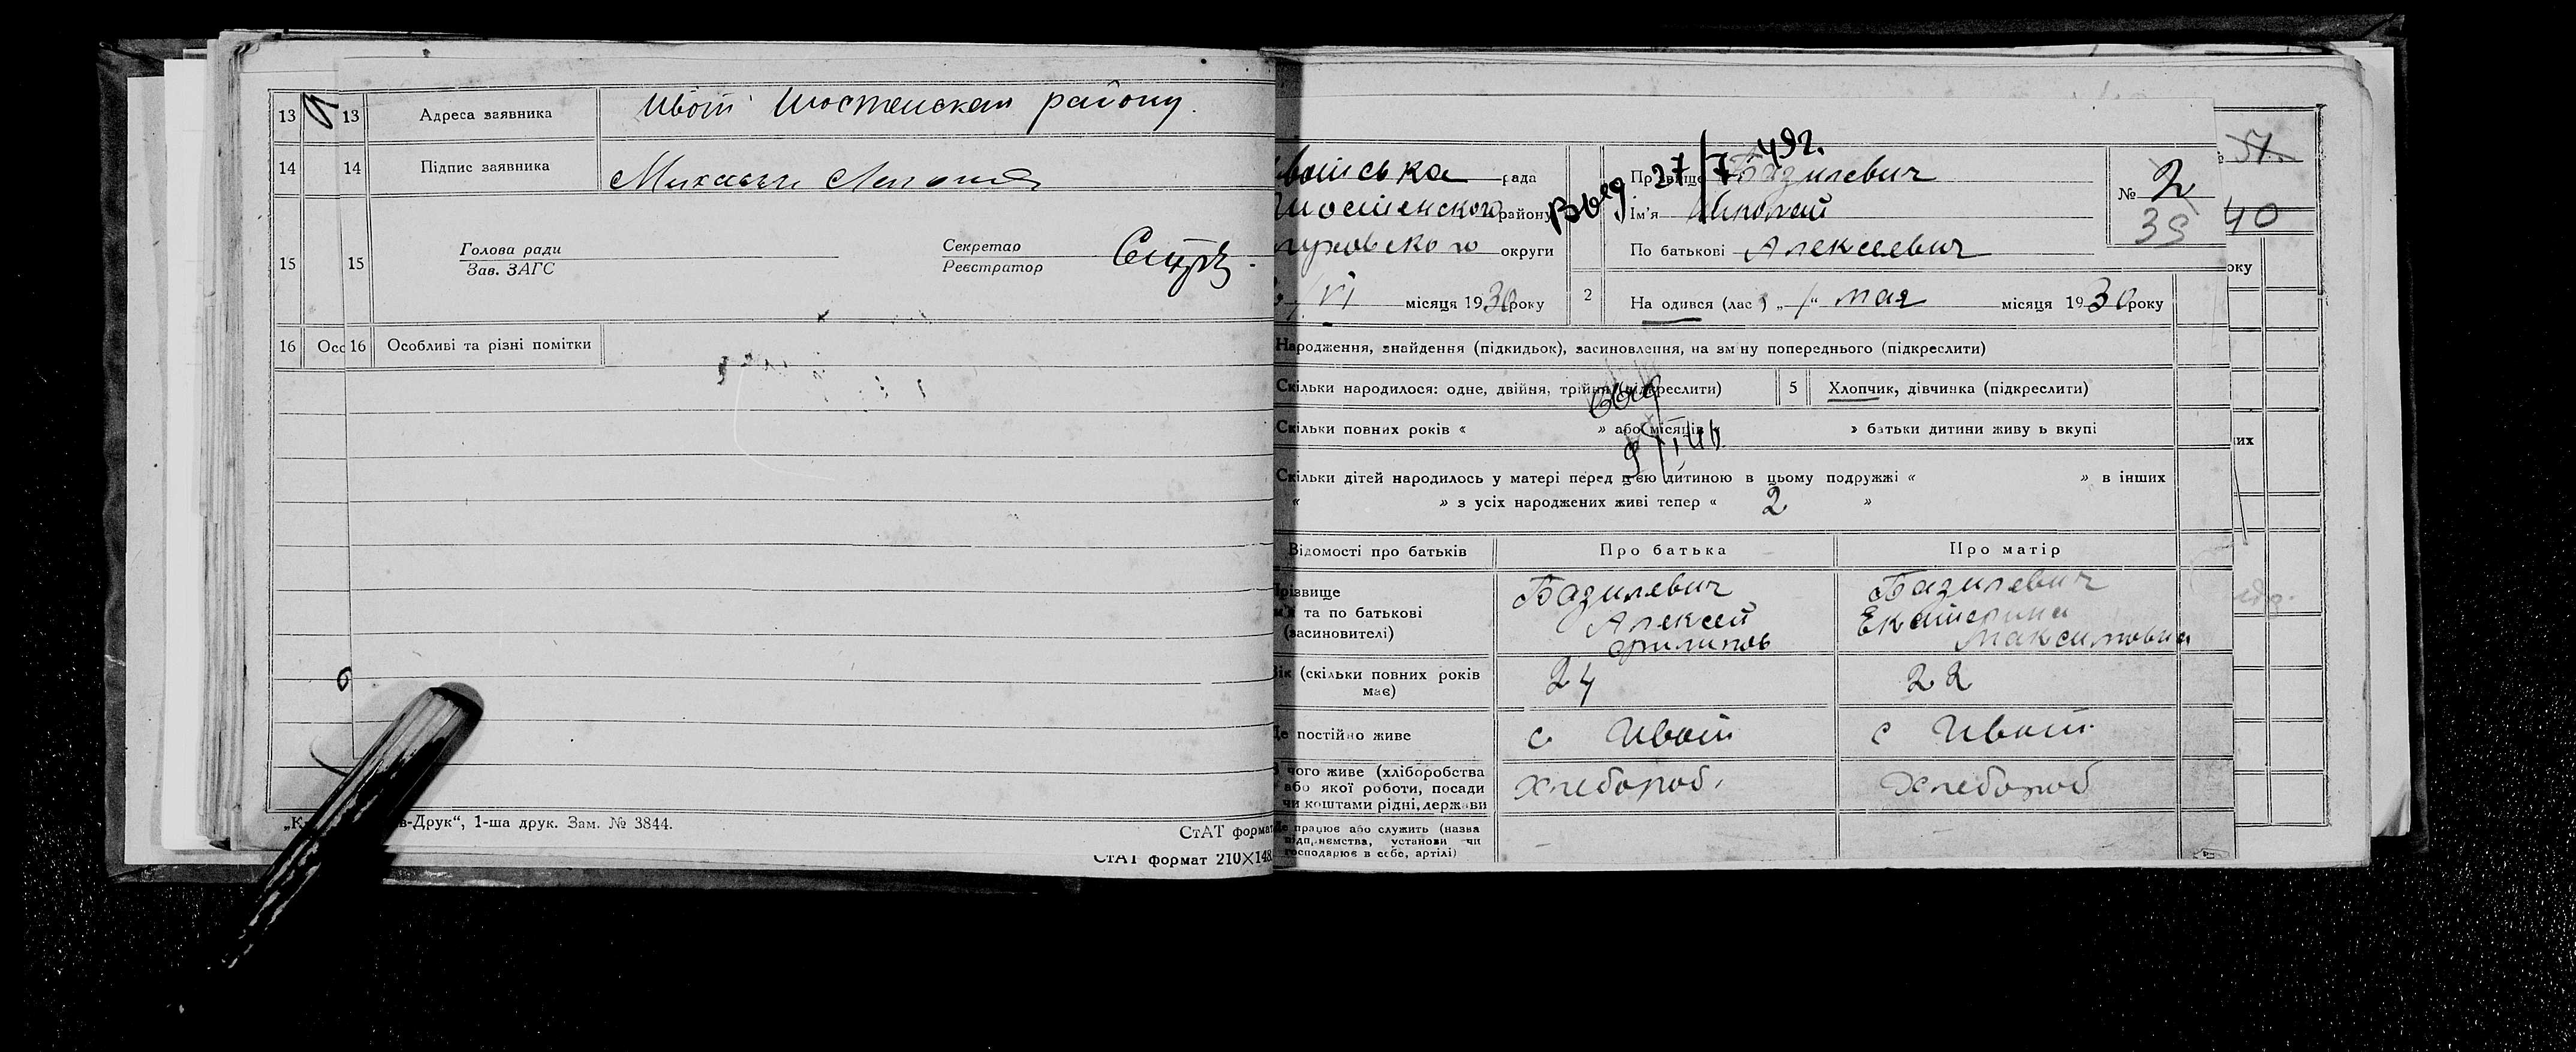 13 13 Адреса заявника Ивот Шостенскам району.
14 14 Підпис заявника Михаил
15 15 Голова ради
Зав. ЗАГС
Секретар
Реєстратор
16 Осо 16 Особливі та різні помітки
в-Друк“, 1-ша друк. Зам. № 3844.
СтАТ формат
СтАТ формат 210×148.
воиська рада
остенского району
луховского округи
VI місяця 1930 року
Выд 27/7 49г.
Прізвище Базилевич
Ім'я Николай
По батькові Алексеевич
№ 2
39
51.
40
оку
2 На одився (лас ) „ 1 “ мая місяця 1930 року
Народження, знайдення (підкидьок), засиновлення, на зм ну попереднього (підкреслити)
Скільки народилося: одне, двійня, трійня (підкреслити) 5 Хлопчик, дівчинка (підкреслити)
Скільки повних років « » або місяців « » батьки дитини живу ь вкупі
их
Скільки дітей народилось у матері перед цією дитиною в цьому подружжі « » в інших
« » з усіх народжених живі тепер « 2 »
Відомості про батьків Про батька Про матір
Прізвище
ім'я та по батькові
(засиновителі)
Базилевич
Алексей
Филипов
Базилевич
Екатерина
Максимовна
Вік (скільки повних років
має)
24 22
Де постійно живе с Ивот с Ивот
З чого живе (хліборобства
або якої роботи, посади
чи коштами рідні, держави
Хлебороб Хлебороб
Де працює або служить (назва
підприємства, установи чи
господарює в себе, артілі)